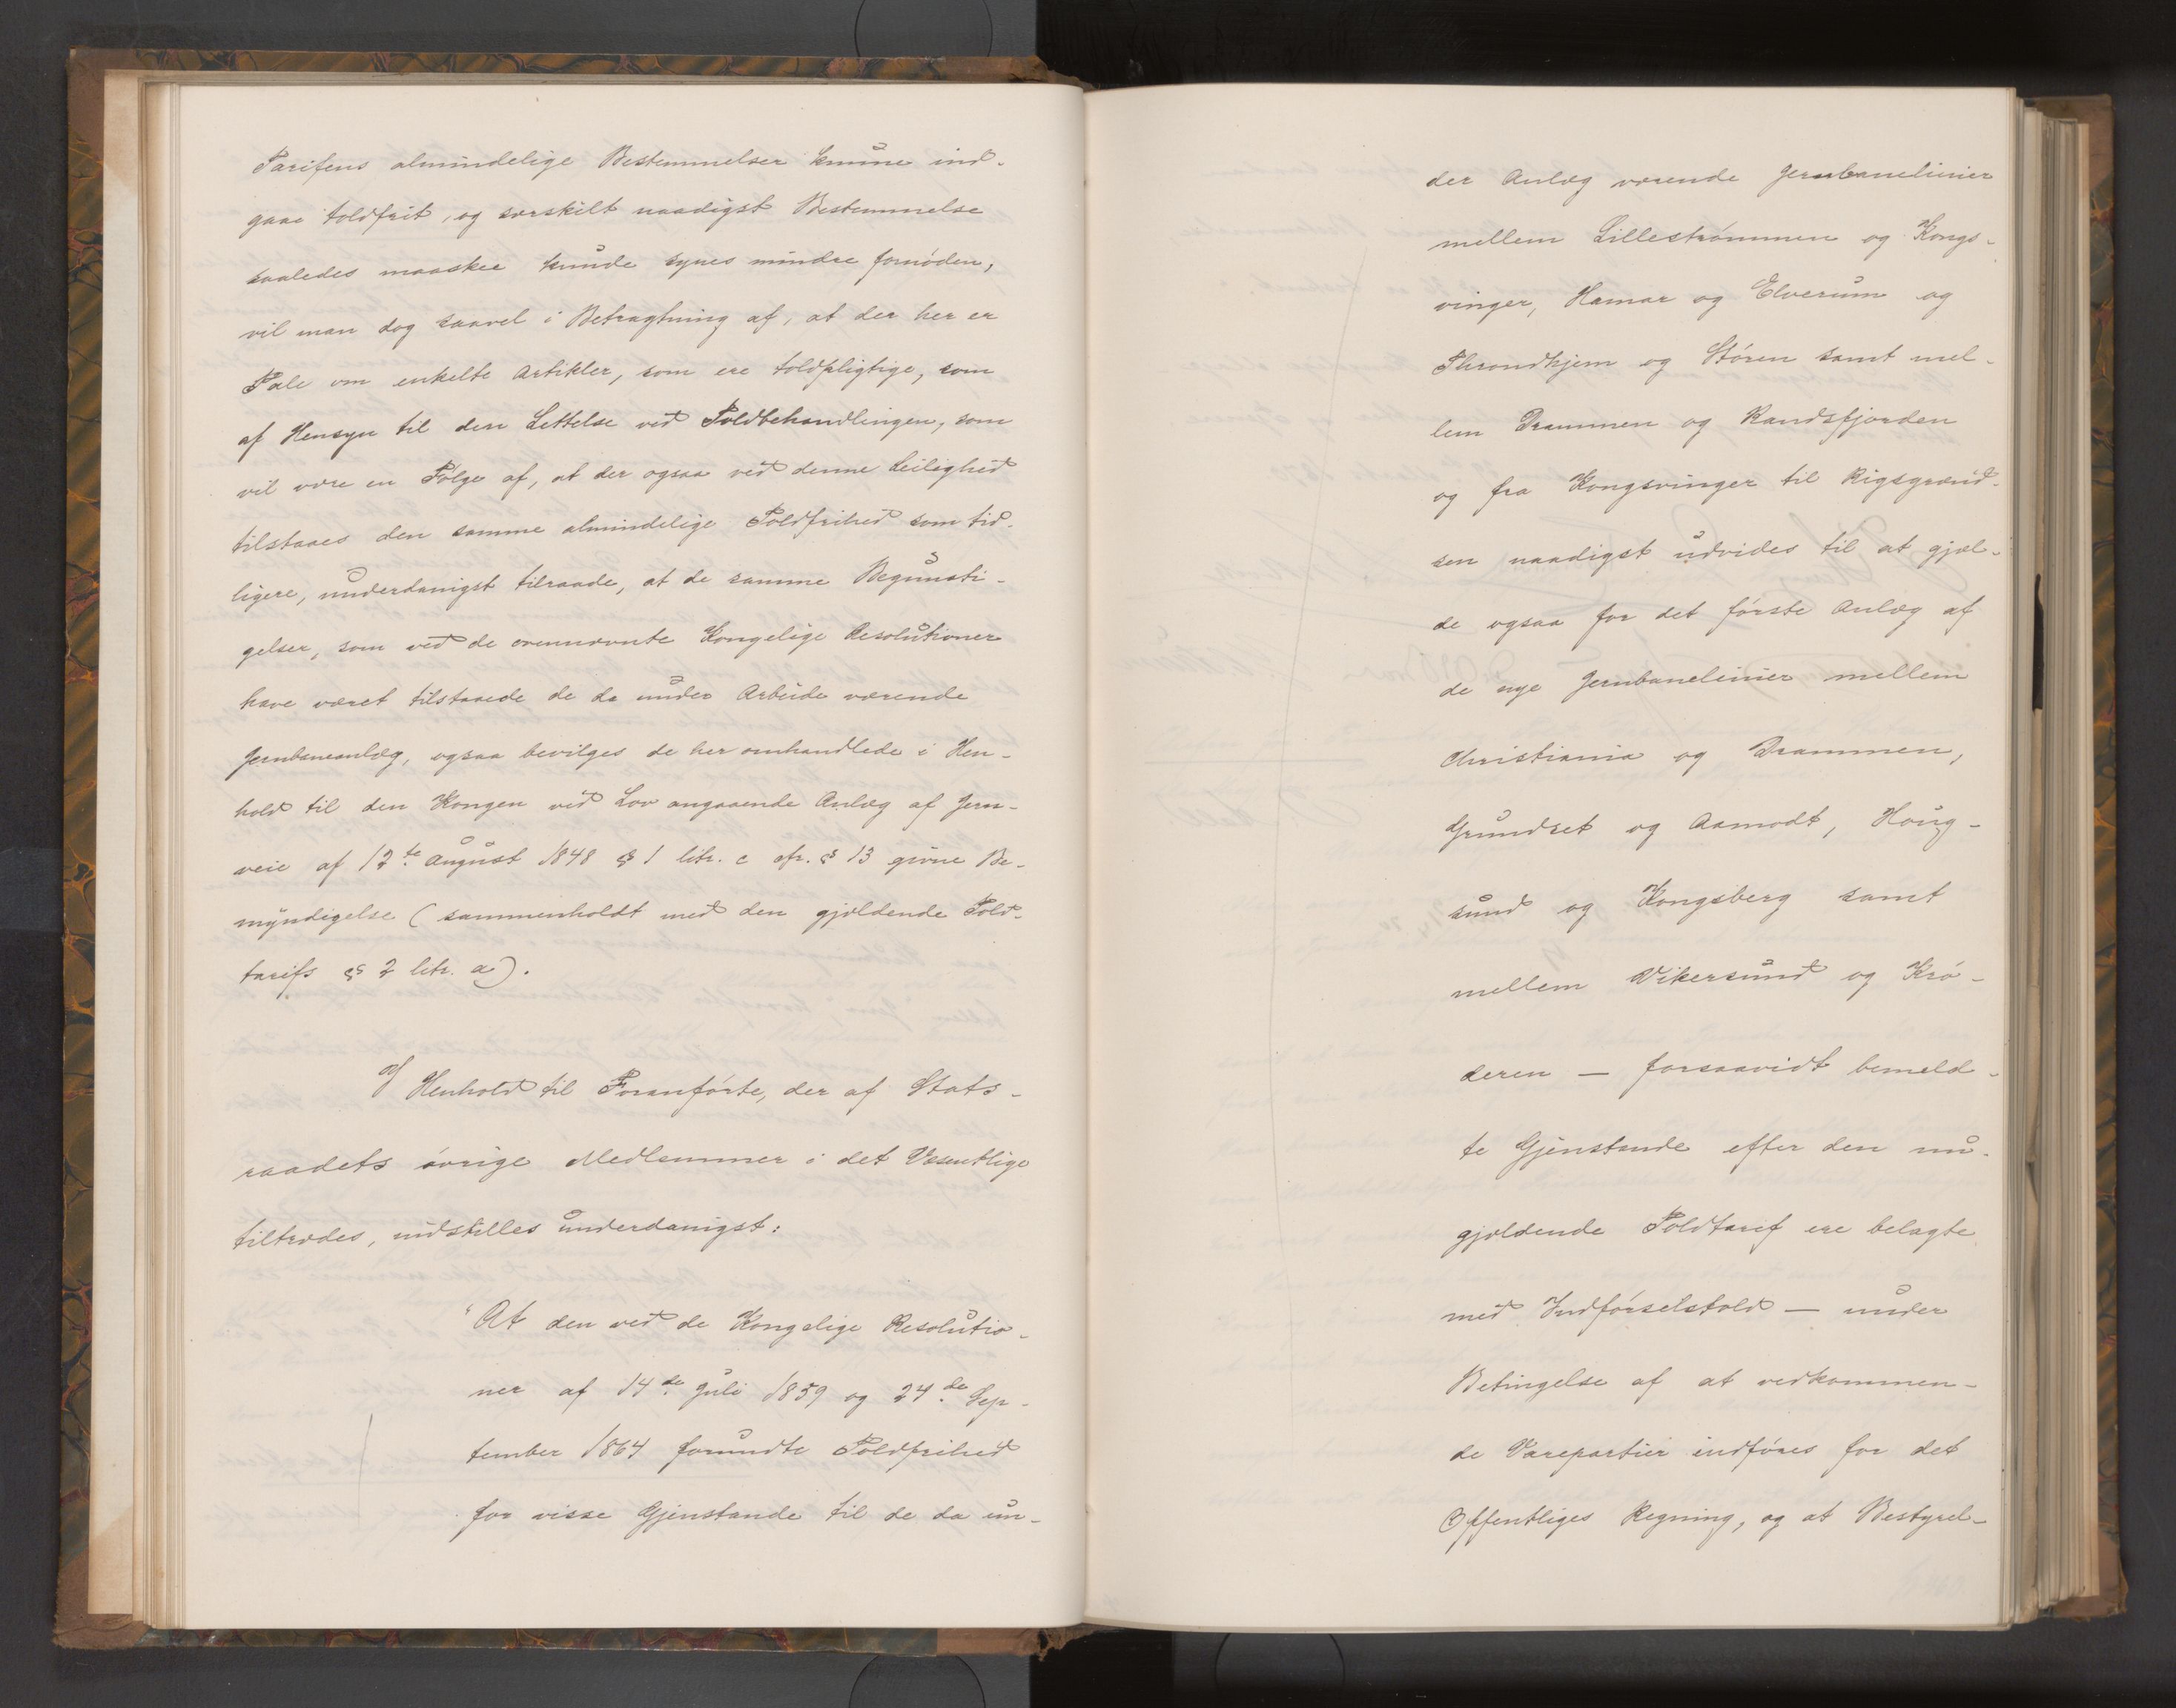 Tarifens almindelige Bestemmelser kunne ind-
gaae toldfrit, og særskilt naadigst Bestemmelse
saaledes maaskee kunde synes mindre fornøden,
vil man dog saavel i Betragtning af, at der her er
Tale om enkelte Artikler, som ere toldpligtige, som
af Hensyn til den Lettelse ved Toldbehandlingen, som
vil være en Følge af, at der ogsaa ved denne Leilighed
tilstaaes den samme almindelige Toldfrihed som tid-
ligere, underdanigst tilraade, at de samme Begunsti-
gelser, som ved de ovennævnte Kongelige Resolutioner
have været tilstaaede de da under Arbeide værende
Jernbaneanlæg, ogsaa bevilges de her omhandlede i Hen-
hold til den Kongen ved Lov angaaende Anlæg af Jern-
veie af 12te August 1848 § 1 litr. c cfr. § 13 givne Be-
myndigelse (sammenholdt med den gjældende Told-
tarifs § 2 litr. a).
I Henhold til Foranførte, der af Stats-
raadets øvrige Medlemmer i det Væsentlige
tiltrædes, indstilles underdanigst:
"At den ved de Kongelige Resolutio-
ner af 14de Juli 1859 og 24de Sep-
tember 1864 forundte Toldfrihed
for visse Gjenstande til de da un-
der Anlæg værende Jernbanelinier
mellem Lillestrømmen og Kongs-
vinger, Hamar og Elverum og
Throndhjem og Støren samt mel-
lem Drammen og Randsfjorden
og fra Kongsvinger til Rigsgrænd-
sen naadigst udvides til at gjæl-
de ogsaa for det første Anlæg af
de nye Jernbanelinier mellem
Christiania og Drammen,
Grundset og Aamodt, Houg-
sund og Kongsberg samt
mellem Vikersund og Krø-
deren — forsaavidt bemeld-
te Gjenstande efter den nu-
gjældende Toldtarif ere belagte
med Indførselstold — under
Betingelse af at vedkommen-
de Varepartier indføres for det
Offentliges Regning, og at Bestyrel-